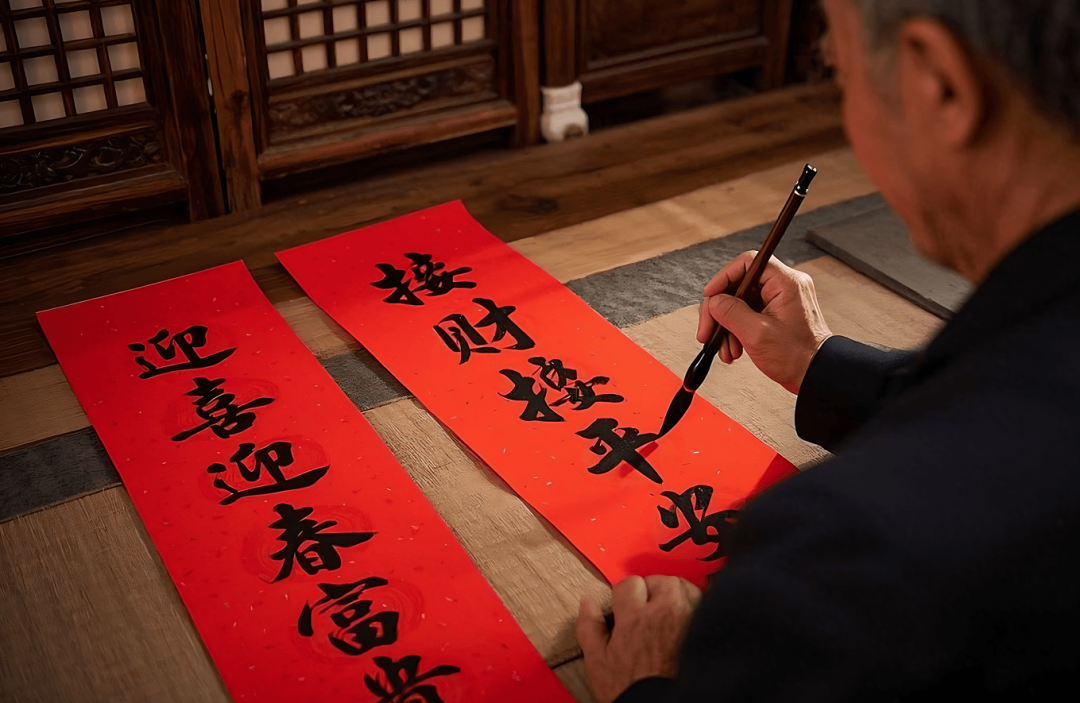 迎喜迎春富贵
接财接平安